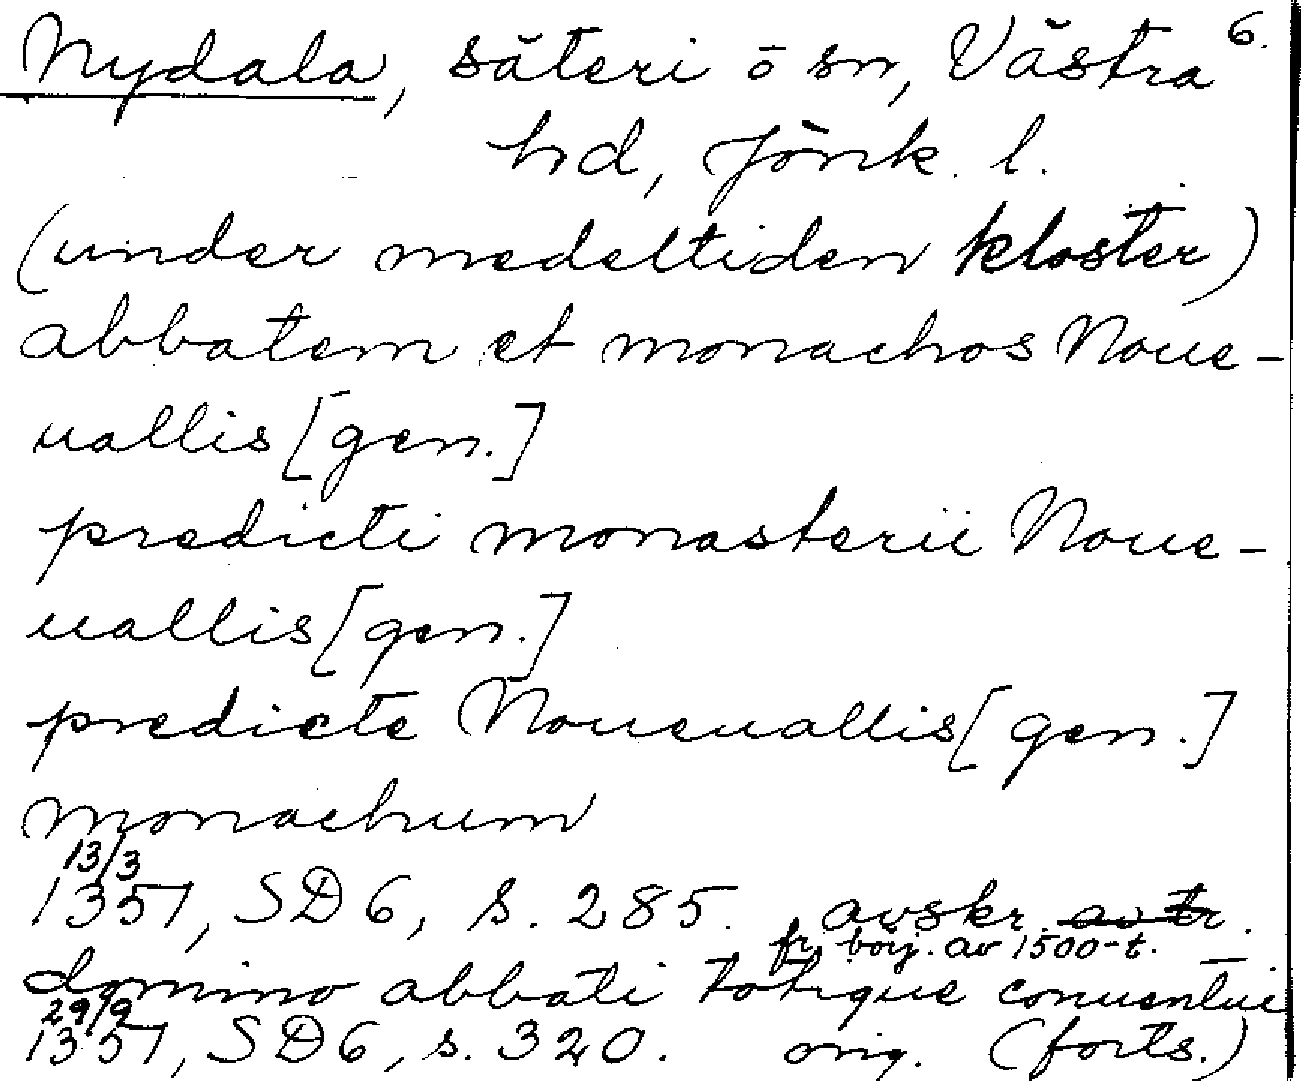 Nydala, säteri o sn, Västra 6.
hd, Jönk. l.
(under medeltiden kloster)
abbatem et monachos Noue-
uallis [gen.]
predicti monasterii Noue-
uallis [gen.]
predicte Noueuallis [gen.]
monachum
13/3
1351, SD 6, s. 285. avskr. av tr.
fr. börj. av 1500-t.
domino abbati totique conuentui
29/9
1351, SD 6, s. 320. orig. (forts.)